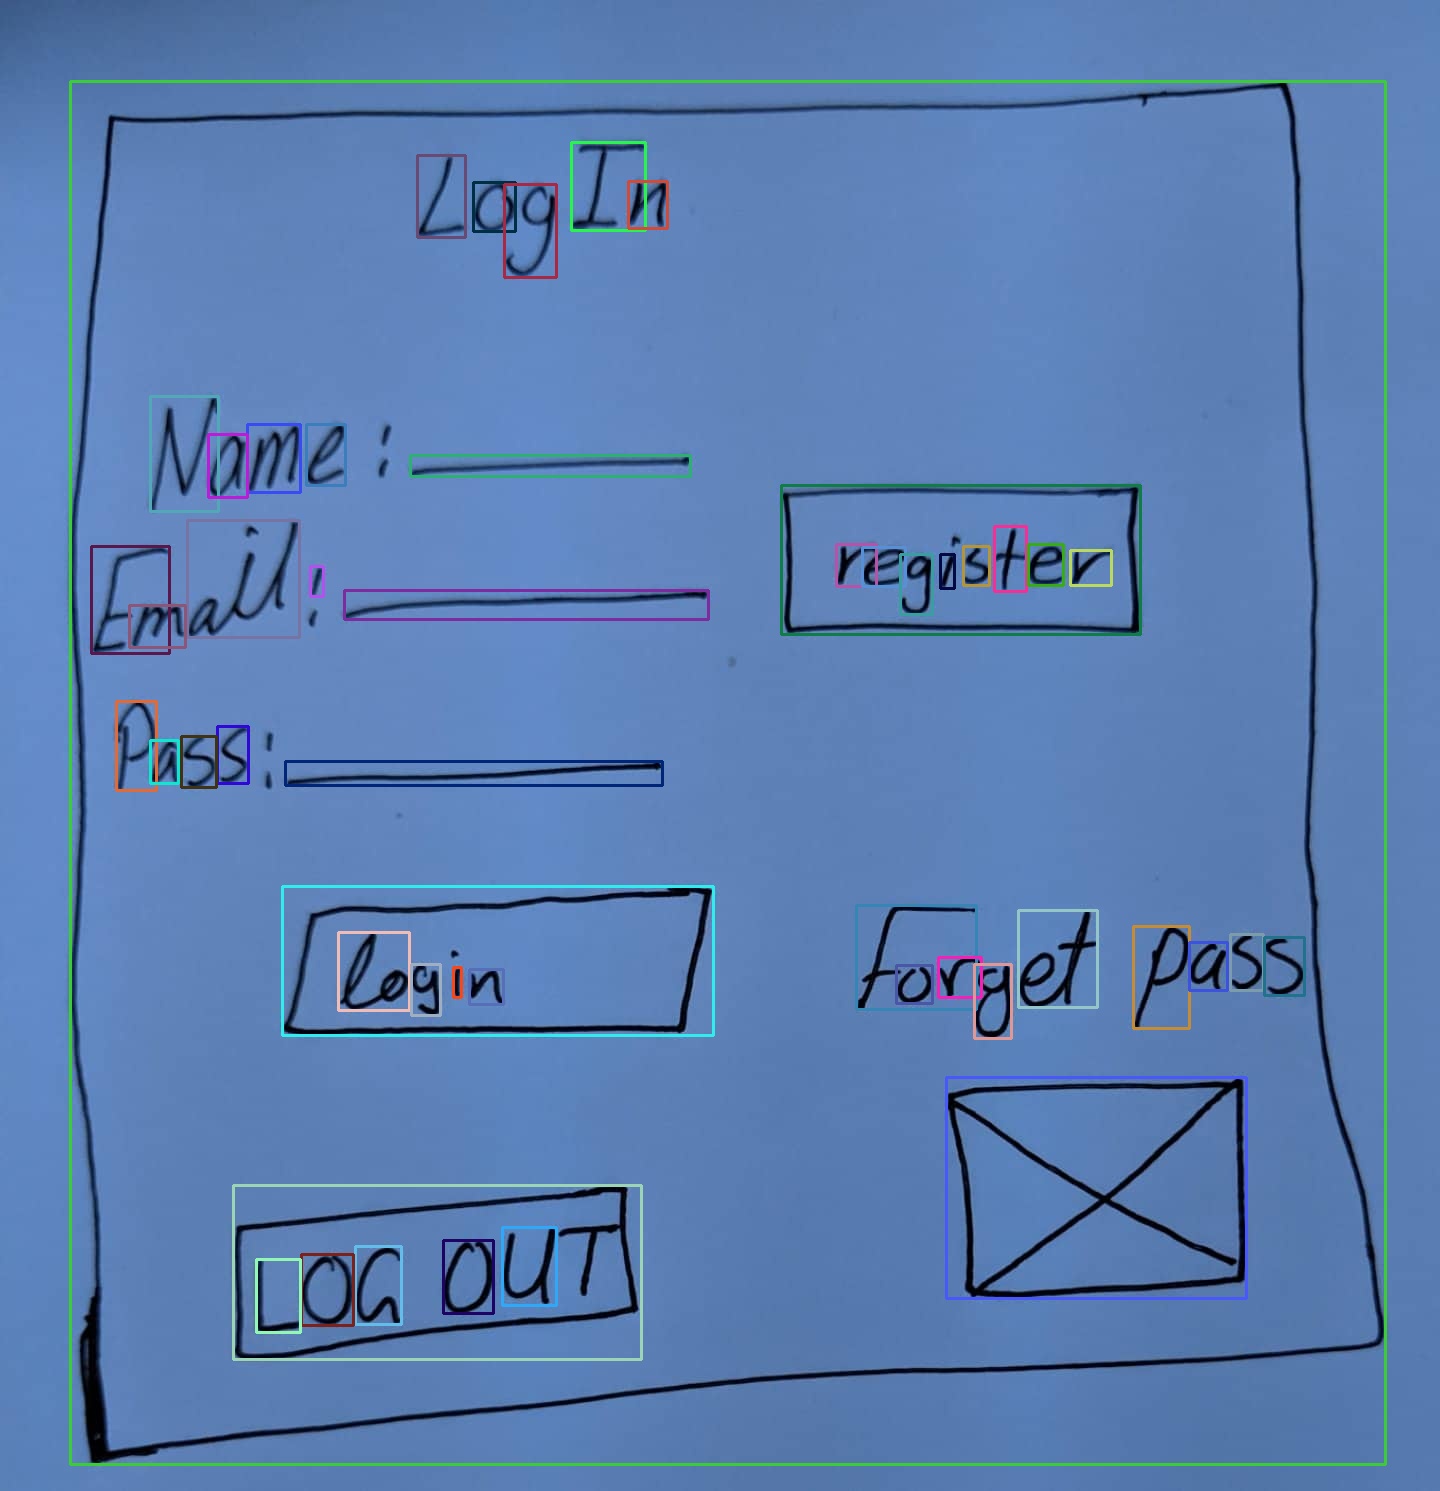 Log In
Name :
Email :
register
Pass :
login
forget pass
LOG OUT